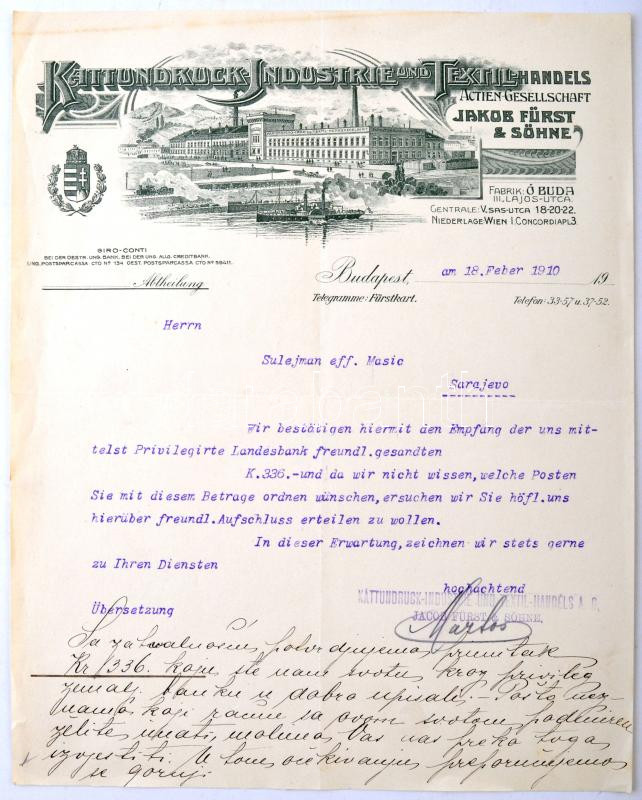 KATTUNDRUCK-INDUSTRIE UND TEXTIL-HANDELS
ACTIEN-GESELLSCHAFT
JAKOB FÜRST
& SÖHNE
FABRIK: Ó BUDA
III. LAJOS-UTCA.
CENTRALE: V. SAS-UTCA 18-20-22.
NIEDERLAGE: WIEN I. CONCORDIAPL 3.
GIRO-CONTI
BEI DER OESTR. UNG. BANK, BEI DER UNG. ALLG. CREDITBANK.
UNG. POSTSPARCASSA CTO Nº 134 OEST. POSTSPARCASSA CTO Nº 59411.
Abtheilung
Budapest, am 18.Feber 1910 19
Telegramme: Fürstkart.
Telefon: 33-57 u. 37-52.
Herrn
Sulejman eff. Masic
Sarajevo
Wir bestätigen hiermit den Empfang der uns mit-
telst Privilegirte Landesbank freundl.gesandten
K.336.-und da wir nicht wissen,welche Posten
Sie mit diesem Betrage ordnen wünschen,ersuchen wir Sie höfl.uns
hierüber freundl.Aufschluss erteilen zu wollen.
In dieser Erwartung,zeichnen wir stets gerne
zu Ihren Diensten
hochachtend
KATTUNDRUCK-INDUSTRIE UND TEXTIL-HANDELS A. G.
JACOB FÜRST & SÖHNE.
Übersetzung
Sa zahvalnošću potvrdjujemo primitak
Kr 336. koje ste nam svotu kroz privileg
zemalj. banku u dobro upisali. - Pošto nez-
namo koji račun sa ovom svotom
želite imati, molimo Vas nas preko toga
izvjestiti. U tom očekivanju preporučujemo
se gornji.